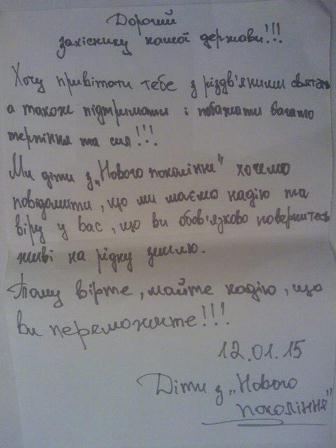 Дорогий
захіснику нашої держави!!!
Хочу привітати тебе з різдв'яними святами
а також підтримати і побажати багато
терпіння та сил!!!
Ми діти з „Нового покоління" хочемо
повідомити, що ми маємо надію та
віру у вас, що ви обов'язково повернитесь
живі на рідну землю.
Тому вірте, майте надію, що
ви переможите!!!
12.01.15
Діти з „Нового
покоління"